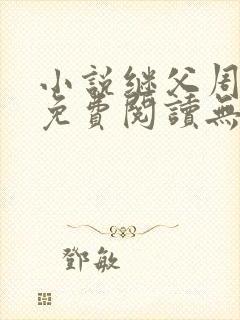 小說継父周
免費閱讀無
鄧敏